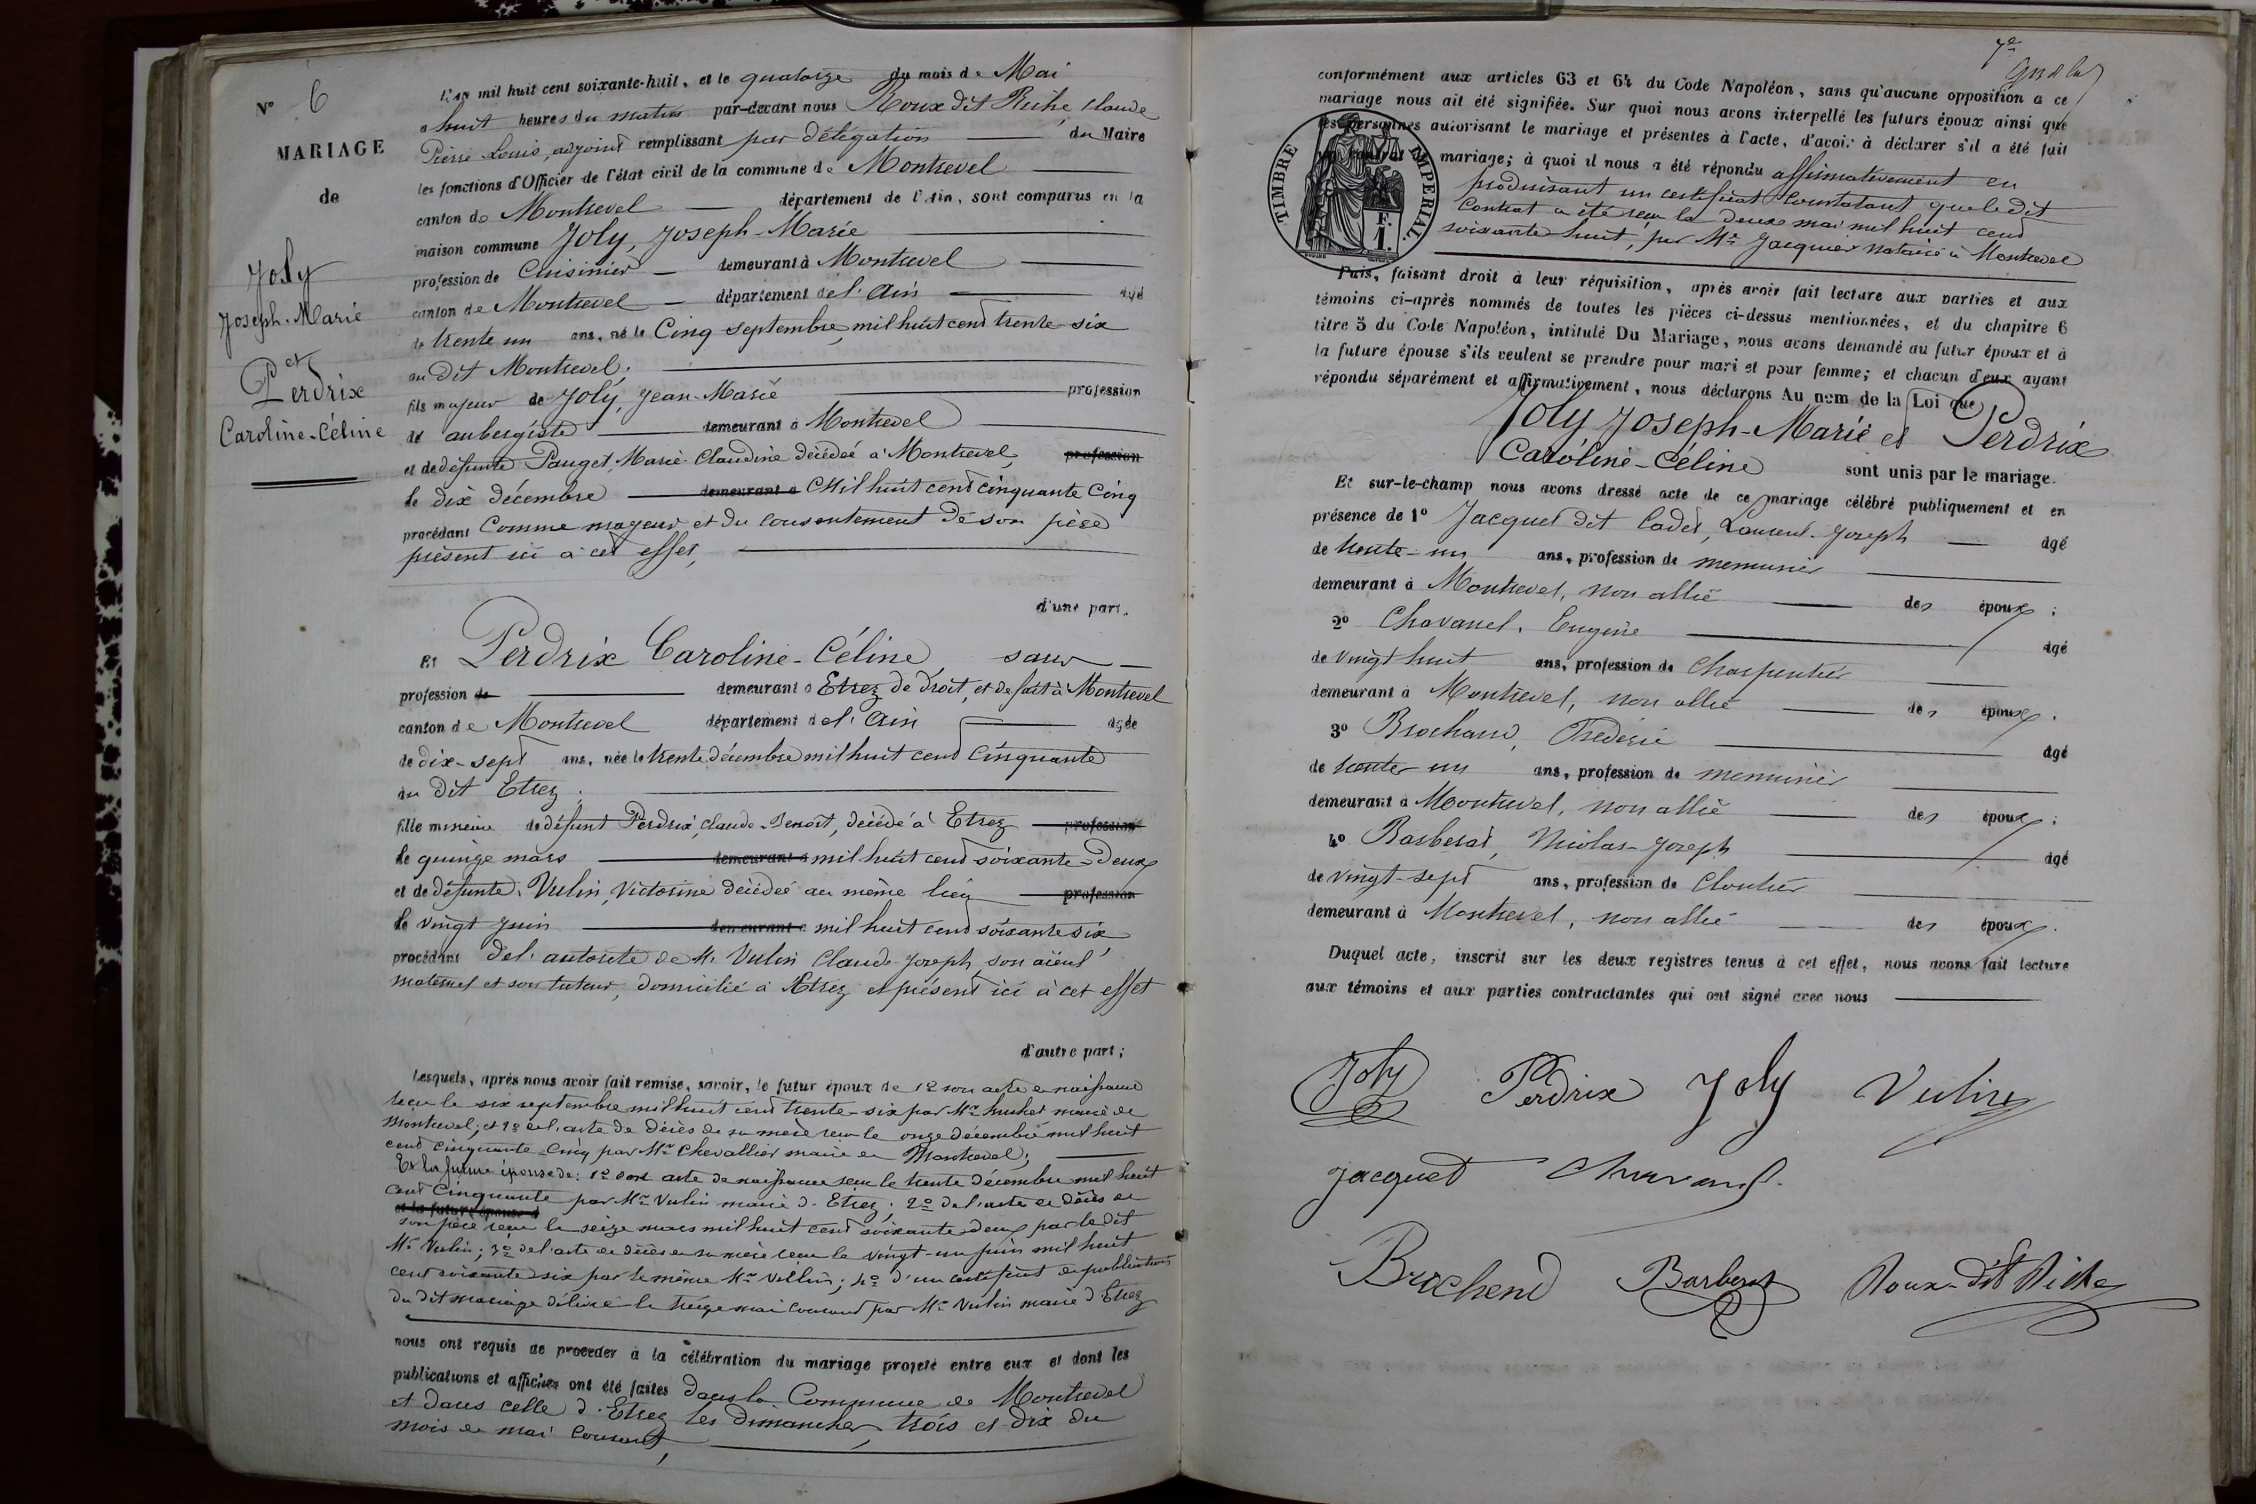 N° 6
MARIAGE
de
Joly
Joseph-Marie
et
Perdrix
Caroline-Céline
L'an mil huit cent soixante-huit, et le quatorze du mois de Mai
a huit heures du matin par-devant nous Roux dit Riche, Claude
Pierre Louis, adjoint remplissant par délégation du Maire
les fonctions d'Officier de l'état civil de la commune de Montrevel
canton de Montrevel département de l'Ain, sont comparus en la
maison commune Joly, Joseph-Marie
profession de Cuisinier demeurant à Montrevel
canton de Montrevel département de l'Ain âgé
de trente un ans, né le Cinq septembre mil huit cent trente-six
au dit Montrevel.
fils majeur de Joly, Jean-Marie profession
de aubergiste demeurant à Montrevel
et de défunte Pauget, Marie-Claudine décédée à Montrevel, profession
le dix décembre demeurant à Mil huit cent cinquante cinq
procédant Comme majeur et du consentement de son père
présent ici à cet effet,
d'une part.
Et Perdrix Caroline-Céline, sans
profession de demeurant à Etrez de droit, et de fait à Montrevel
canton de Montrevel département de l'Ain âgée
de dix-sept ans, née le trente décembre mil huit cent cinquante
au dit Etrez.
fille mineure de défunt Perdrix, Claude-Benoît, décédé à Etrez profession
le quinze mars demeurant à mil huit cent soixante-deux
et de défunte Vulin, Victorine décédée au même lieu profession
le vingt juin demeurant à mil huit cent soixante six
procédant de l'autorité de M. Vulin Claude-Joseph, son aïeul
maternel et son tuteur, domicilié à Etrez et présent ici à cet effet
d'autre part;
Lesquels, après nous avoir fait remise, savoir, le futur époux de 1° son acte de naissance
reçu le six septembre mil huit cent trente-six par Mr maire de
Montrevel; et 2° de l'acte de décès de sa mère reçu le onze décembre mil huit
cent cinquante-cinq par Mr Chevallier maire de Montrevel;
Et la future épouse de: 1° son acte de naissance reçu le trente décembre mil huit
cent cinquante par Mr Vulin maire d'Etrez; 2° de l'acte de décès de
et la future épouse d
son père reçu le seize mars mil huit cent soixante deux par le dit
Mr Vulin; 3° de l'acte de décès de sa mère reçu le vingt-un juin mil huit
cent soixante six par le même Mr Vullin; 4° d'un certificat de publications
du dit mariage délivré le treize mai courant par Mr Vulin maire d'Etrez
nous ont requis de procéder à la célébration du mariage projeté entre eux et dont les
publications et affiches ont été faites dans la Commune de Montrevel
et dans celle d'Etrez les dimanches trois et dix du
mois de mai courant,
7e
conformément aux articles 63 et 64 du Code Napoléon, sans qu'aucune opposition a ce
mariage nous ait été signifiée. Sur quoi nous avons interpellé les futurs époux ainsi que
les personnes autorisant le mariage et présentes à l'acte, d'avoir à déclarer s'il a été fait
mariage; à quoi il nous a été répondu affirmativement en
produisant un certificat constatant que le dit
contrat a été reçu le deux mai mil huit cent
soixante huit, par Mr Jacquier notaire à Montrevel
TIMBRE IMPERIAL.
Puis, faisant droit à leur réquisition, après avoir fait lecture aux parties et aux
témoins ci-après nommés de toutes les pièces ci-dessus mentionnées, et du chapitre 6
titre 5 du Code Napoléon, intitulé Du Mariage, nous avons demandé au futur époux et à
la future épouse s'ils veulent se prendre pour mari et pour femme; et chacun d'eux ayant
répondu séparément et affirmativement, nous déclarons Au nom de la Loi que
Joly Joseph-Marie et Perdrix
Caroline-Céline sont unis par le mariage.
Et sur-le-champ nous avons dressé acte de ce mariage célébré publiquement et en
présence de 1° Jacquet dit Cadet, Laurent-Joseph âgé
de trente-un ans, profession de menuisier
demeurant à Montrevel, non allié des époux;
2° Chavanel, Eugène âgé
de vingt huit ans, profession de Charpentier
demeurant à Montrevel, non allié des époux.
3° Brochand, Frédéric âgé
de trente-un ans, profession de menuisier
demeurant à Montrevel, non allié des époux;
4° Barberat, Nicolas-Joseph âgé
de vingt-sept ans, profession de Cloutier
demeurant à Montrevel, non allié des époux.
Duquel acte, inscrit sur les deux registres tenus à cet effet, nous avons fait lecture
aux témoins et aux parties contractantes qui ont signé avec nous
Joly Perdrix Joly Vulin
Jacquet
Brochend Barberat Roux-dit Riche